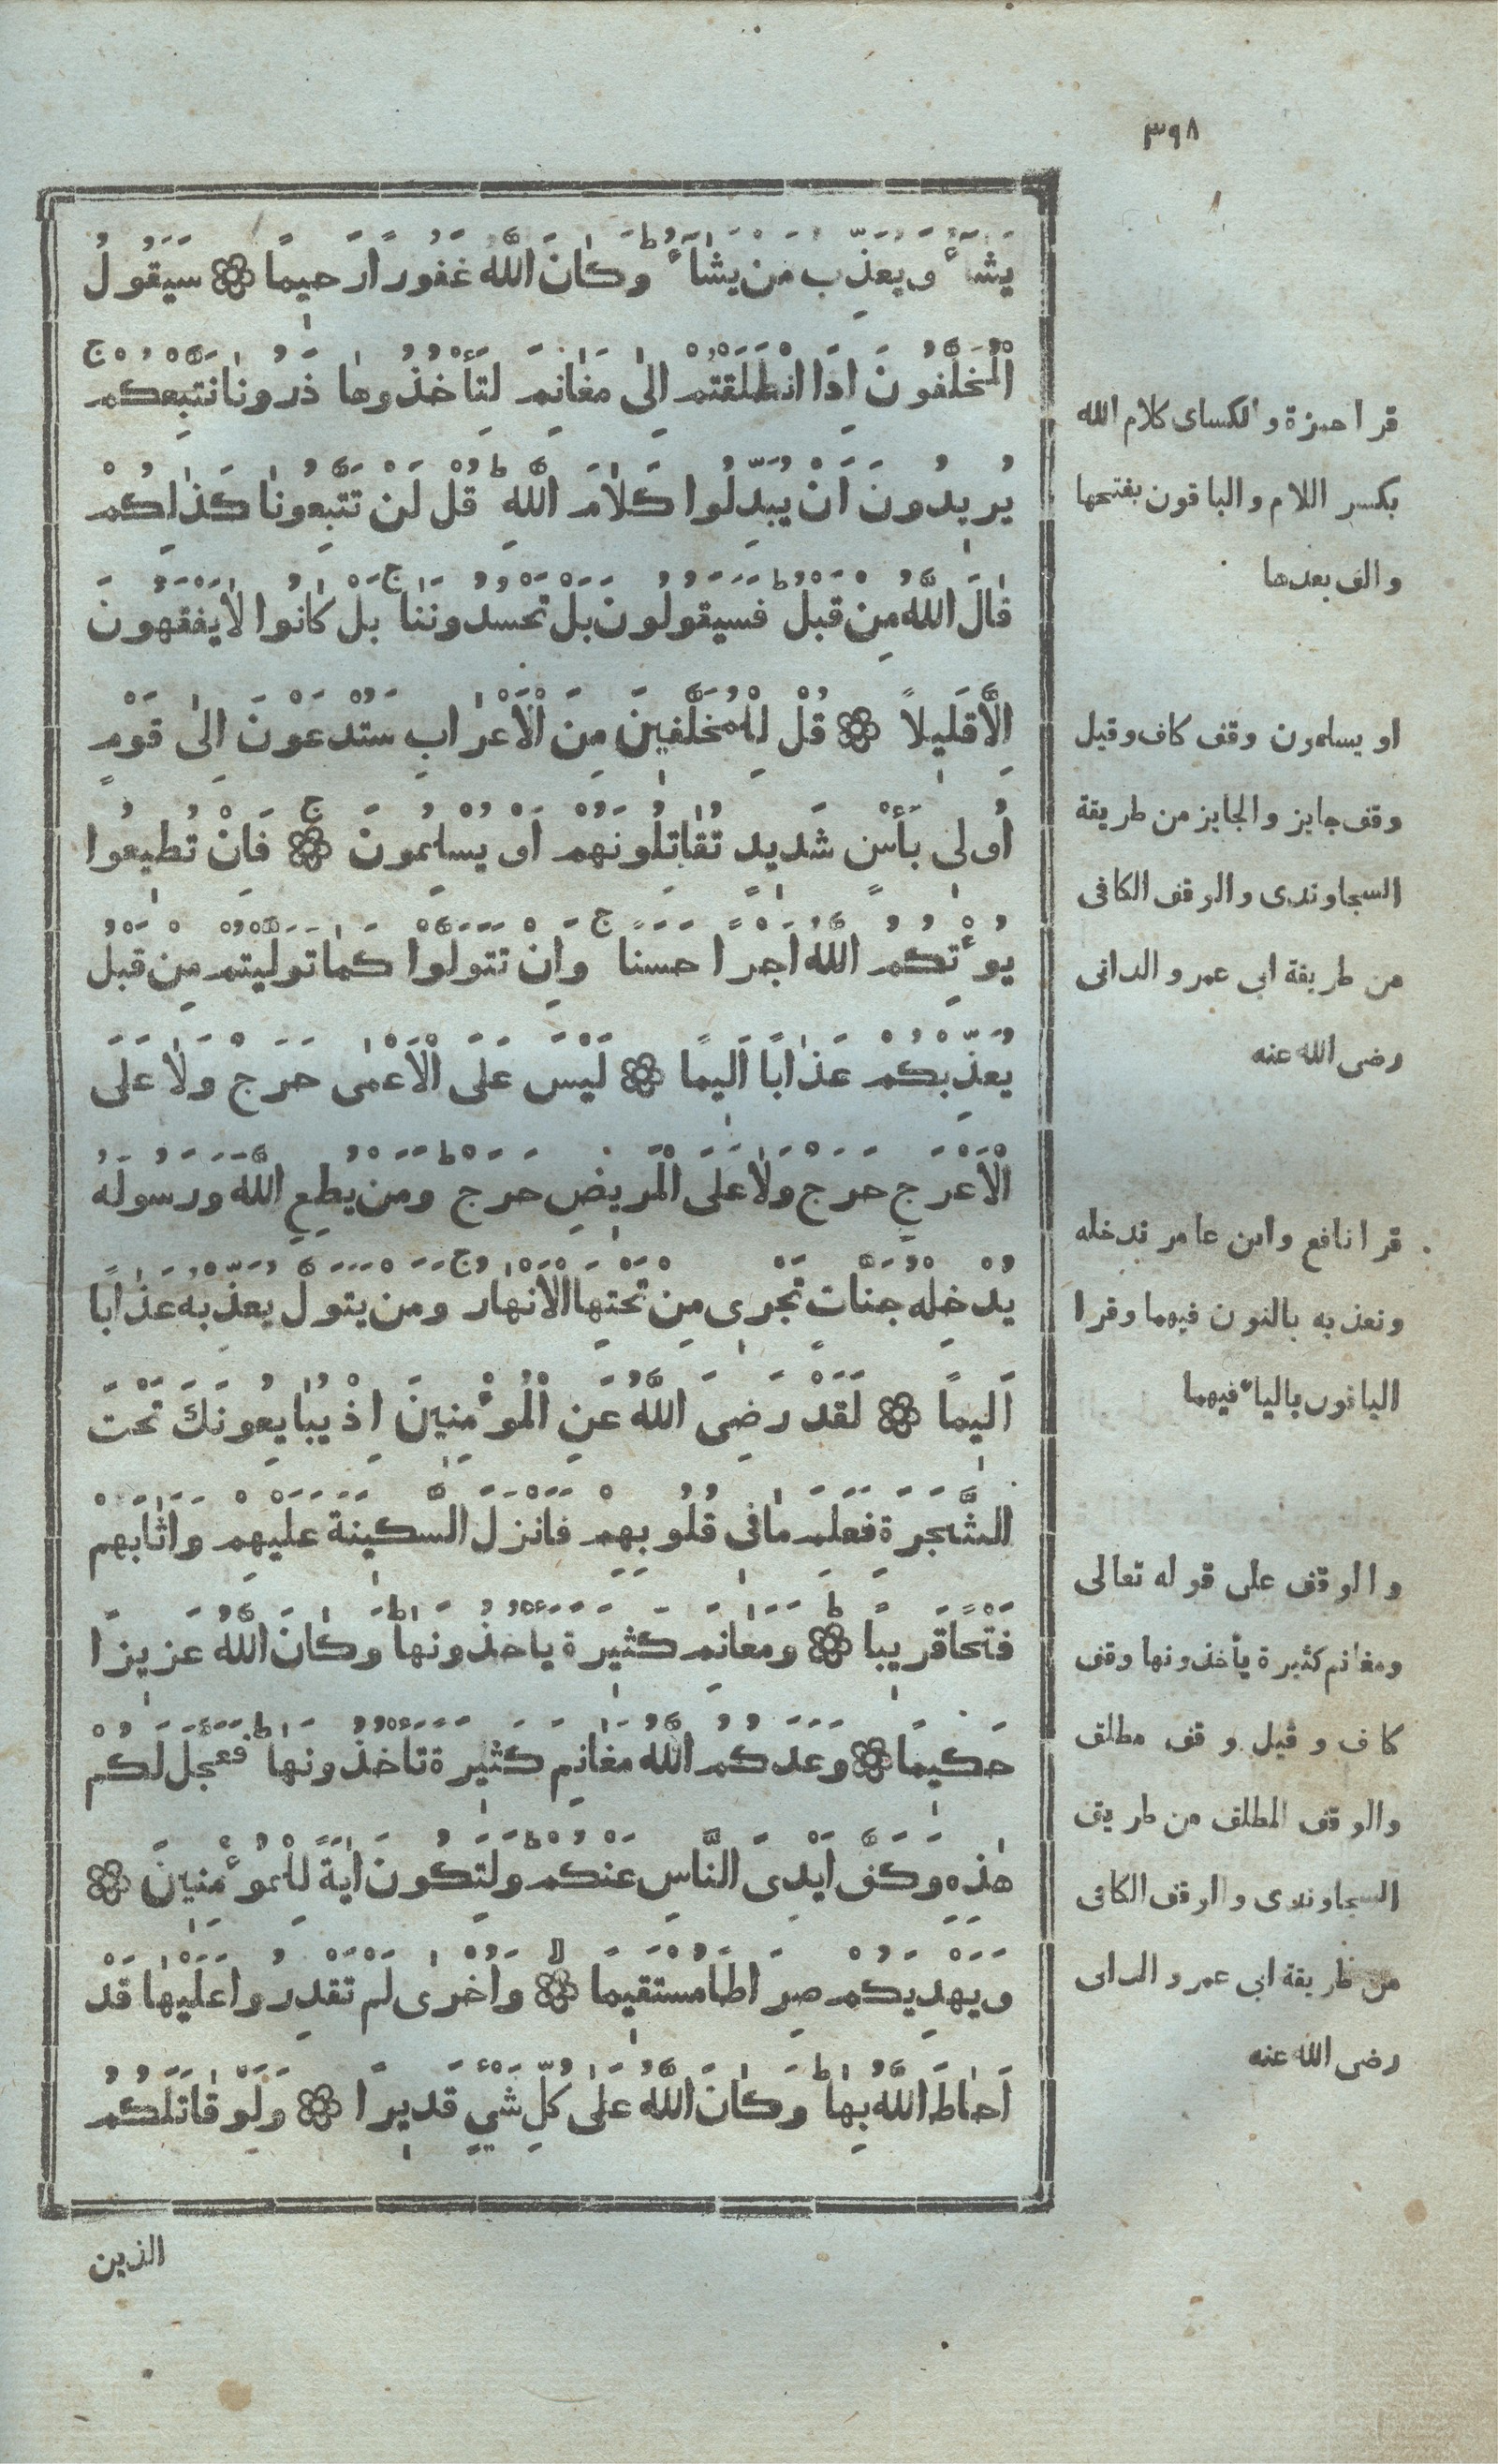 ٣٩٨
يَشَاۤءُ وَيُعَذِّبُ مَنْ يَشَاۤءُ ط وَكَانَ اللّٰهُ غَفُورًا رَحِيمًا ۞ سَيَقُولُ
الْمُخَلَّفُونَ اِذَا انْطَلَقْتُمْ اِلٰى مَغَانِمَ لِتَأْخُذُوهَا ذَرُونَا نَتَّبِعْكُمْ ج
يُرِيدُونَ اَنْ يُبَدِّلُوا كَلَامَ اللّٰهِ ط قُلْ لَنْ تَتَّبِعُونَا كَذٰلِكُمْ
قَالَ اللّٰهُ مِنْ قَبْلُ ط فَسَيَقُولُونَ بَلْ تَحْسُدُونَنَا ج بَلْ كَانُوا لَا يَفْقَهُونَ
اِلَّا قَلِيلًا ۞ قُلْ لِلْمُخَلَّفِينَ مِنَ الْاَعْرَابِ سَتُدْعَوْنَ اِلٰى قَوْمٍ
اُولِى بَأْسٍ شَدِيدٍ تُقَاتِلُونَهُمْ اَوْ يُسْلِمُونَ ج ۞ فَاِنْ تُطِيعُوا
يُؤْتِكُمُ اللّٰهُ اَجْرًا حَسَنًا ج وَاِنْ تَتَوَلَّوْا كَمَا تَوَلَّيْتُمْ مِنْ قَبْلُ
يُعَذِّبْكُمْ عَذَابًا اَلِيمًا ۞ لَيْسَ عَلَى الْاَعْمٰى حَرَجٌ وَلَا عَلَى
الْاَعْرَجِ حَرَجٌ وَلَا عَلَى الْمَرِيضِ حَرَجٌ ط وَمَنْ يُطِعِ اللّٰهَ وَرَسُولَهُ
يُدْخِلْهُ جَنَّاتٍ تَجْرِى مِنْ تَحْتِهَا الْاَنْهَارُ ج وَمَنْ يَتَوَلَّ يُعَذِّبْهُ عَذَابًا
اَلِيمًا ۞ لَقَدْ رَضِىَ اللّٰهُ عَنِ الْمُؤْمِنِينَ اِذْ يُبَايِعُونَكَ تَحْتَ
الشَّجَرَةِ فَعَلِمَ مَا فِى قُلُوبِهِمْ فَاَنْزَلَ السَّكِينَةَ عَلَيْهِمْ وَاَثَابَهُمْ
فَتْحًا قَرِيبًا ط ۞ وَمَغَانِمَ كَثِيرَةً يَاْخُذُونَهَا ط وَكَانَ اللّٰهُ عَزِيزًا
حَكِيمًا ۞ وَعَدَكُمُ اللّٰهُ مَغَانِمَ كَثِيرَةً تَاْخُذُونَهَا ط فَعَجَّلَ لَكُمْ
هٰذِهِ وَكَفَّ اَيْدِىَ النَّاسِ عَنْكُمْ ط وَلِتَكُونَ اٰيَةً لِلْمُؤْمِنِينَ ۞
وَيَهْدِيَكُمْ صِرَاطًا مُسْتَقِيمًا لا ۞ وَاُخْرٰى لَمْ تَقْدِرُوا عَلَيْهَا قَدْ
اَحَاطَ اللّٰهُ بِهَا ط وَكَانَ اللّٰهُ عَلٰى كُلِّ شَىْءٍ قَدِيرًا ۞ وَلَوْ قَاتَلَكُمُ
الذين
قرا حمزة والكساى كلام الله
بكسر اللام والباقون بفتحها
والف بعدها
او يسلمون وقف كاف وقيل
وقف جايز والجايز من طريقة
السجاوندى والوقف الكافى
من طريقة ابى عمرو الدانى
رضى الله عنه
قرا نافع وابن عامر ندخله
ونعذبه بالنون فيهما وقرا
الباقون بالياء فيهما
والوقف على قوله تعالى
ومغانم كثيرة يأخذونها وقف
كاف وقيل وقف مطلق
والوقف المطلق من طريق
السجاوندى والوقف الكافى
من طريقة ابى عمرو الدانى
رضى الله عنه